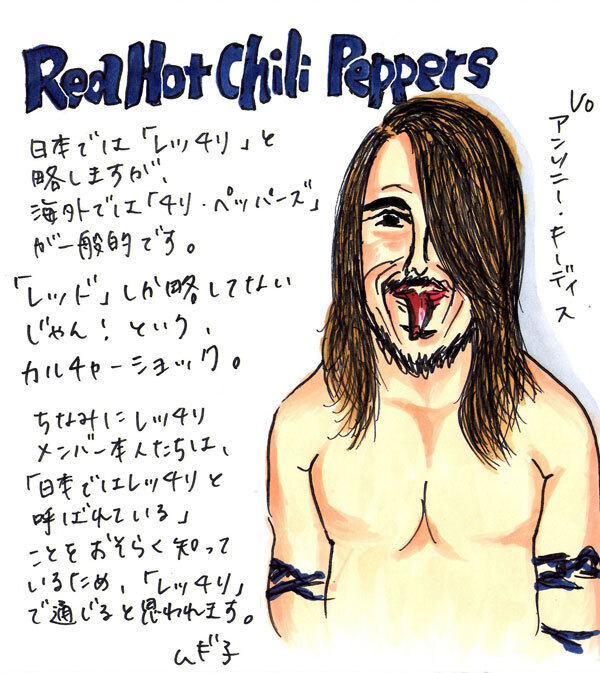 Red Hot Chili Peppers
日本では「レッチリ」と
略しますが、
海外では「チリ・ペッパーズ」
が一般的です。
「レッド」しか略してない
じゃん！という、
カルチャーショック。
ちなみにレッチリ
メンバー本人たちは、
「日本ではレッチリと
呼ばれている」
ことをおそらく知って
いるため、「レッチリ」
で通じると思われます。
むぎ子
Vo
アンソニー・キーディス